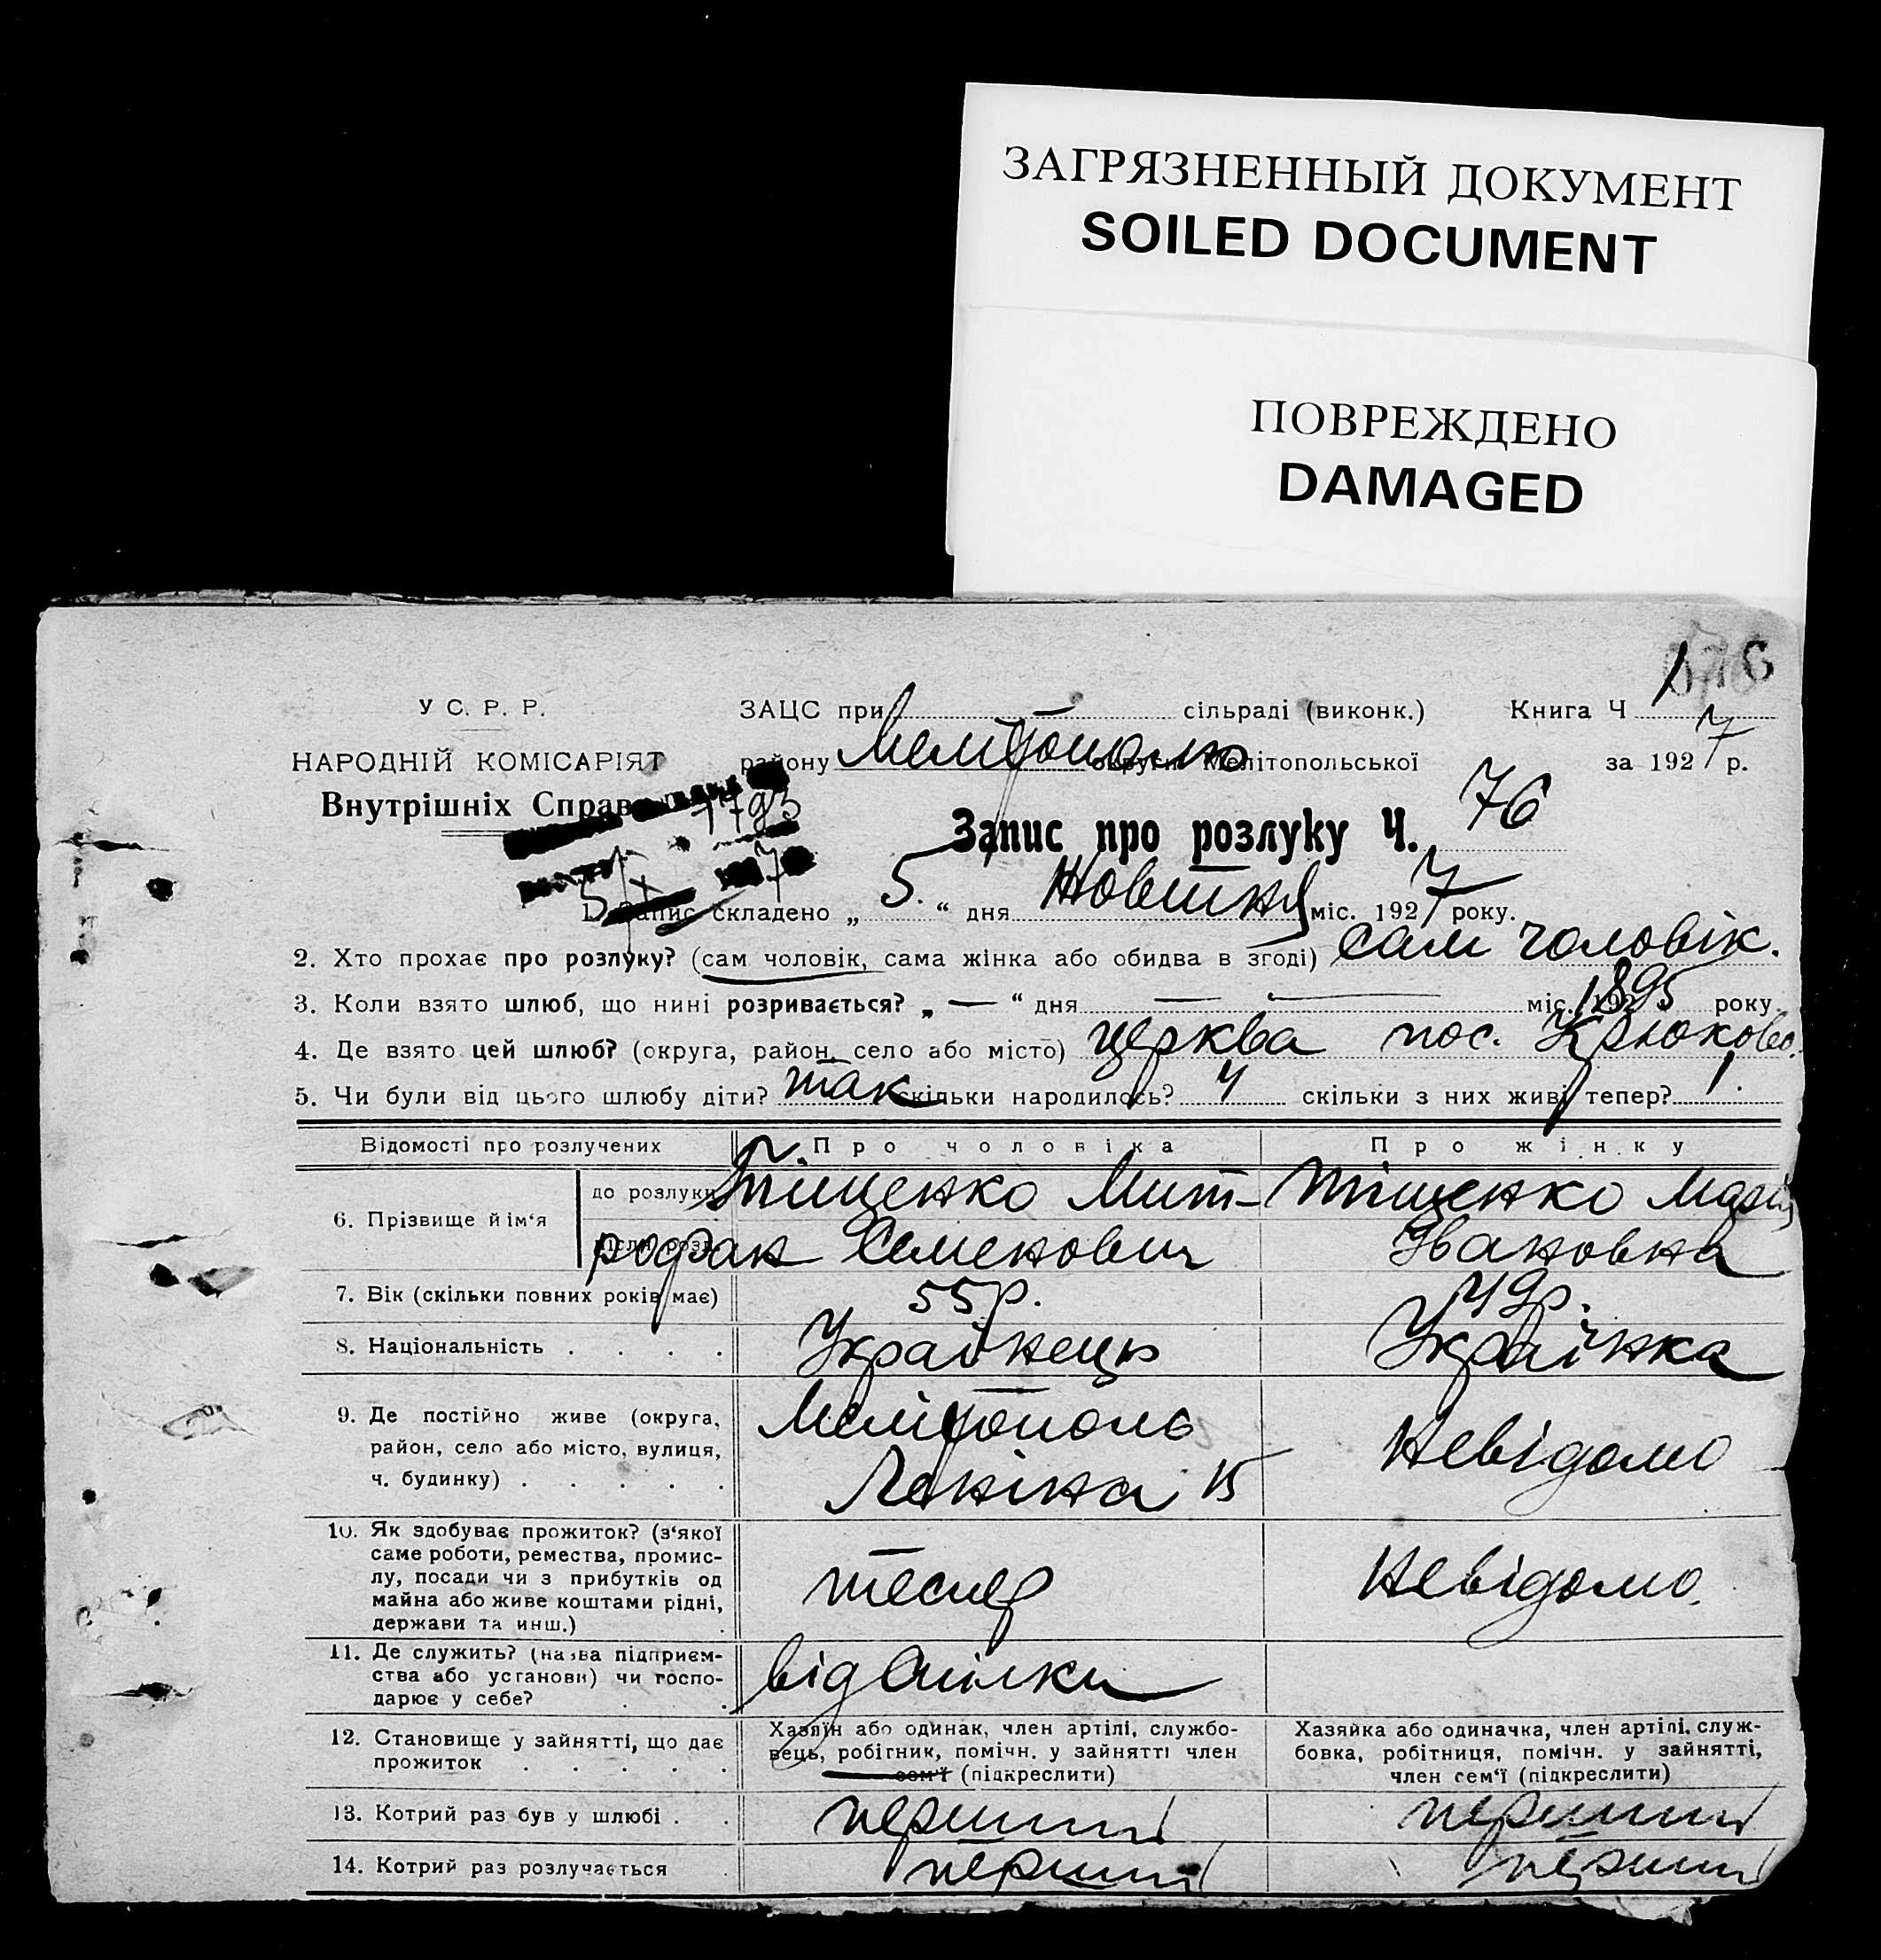 ЗАГРЯЗНЕННЫЙ ДОКУМЕНТ
SOILED DOCUMENT
ПОВРЕЖДЕНО
DAMAGED
У С. Р. Р.
ЗАЦС при — сільраді (виконк.) Книга Ч 1
НАРОДНІЙ КОМІСАРІЯТ
району Мелітополю округи Мелітопольської за 1927 р.
Внутрішніх Справ
1793
Запис про розлуку Ч. 76
5/X 7
1. Запис складено „ 5. “ дня Жовтня міс. 1927 року.
2. Хто прохає про розлуку? (сам чоловік, сама жінка або обидва в згоді) сам чоловік.
3. Коли взято шлюб, що нині розривається? „ — “ дня — міс. 1895 року
4. Де взято цей шлюб? (округа, район, село або місто) церква пос. Крюково.
5. Чи були від цього шлюбу діти? так скільки народилось? 4 скільки з них живі тепер? 1.
Відомості про розлучених
Про чоловіка
Про жінку
6. Прізвище й ім‘я
до розлуки
після розл.
Тищенко Мит-
рофан Семенович
Тіщенко Марія
Івановна
7. Вік (скільки повних років має)
55 р.
49 р.
8. Національність . . . .
Українець
Українка
9. Де постійно живе (округа,
район, село або місто, вулиця,
ч. будинку) . . . . .
Мелітополь
Леніна 15
Невідомо
10. Як здобуває прожиток? (з‘якої
саме роботи, ремества, промис-
лу, посади чи з прибутків од
майна або живе коштами рідні,
держави та инш.)
тесляр
Невідомо.
11. Де служить? (назва підприєм-
ства або установи) чи госпо-
дарює у себе?
від спілки
12. Становище у зайнятті, що дає
прожиток . . . . .
Хазяїн або одинак, член артілі, службо-
вець, робітник, помічн. у зайнятті член
сем‘ї (підкреслити)
Хазяйка або одиначка, член артілі, служ-
бовка, робітниця, помічн. у зайнятті,
член сем‘ї (підкреслити)
13. Котрий раз був у шлюбі . .
перший
перший
14. Котрий раз розлучається
перший
перший